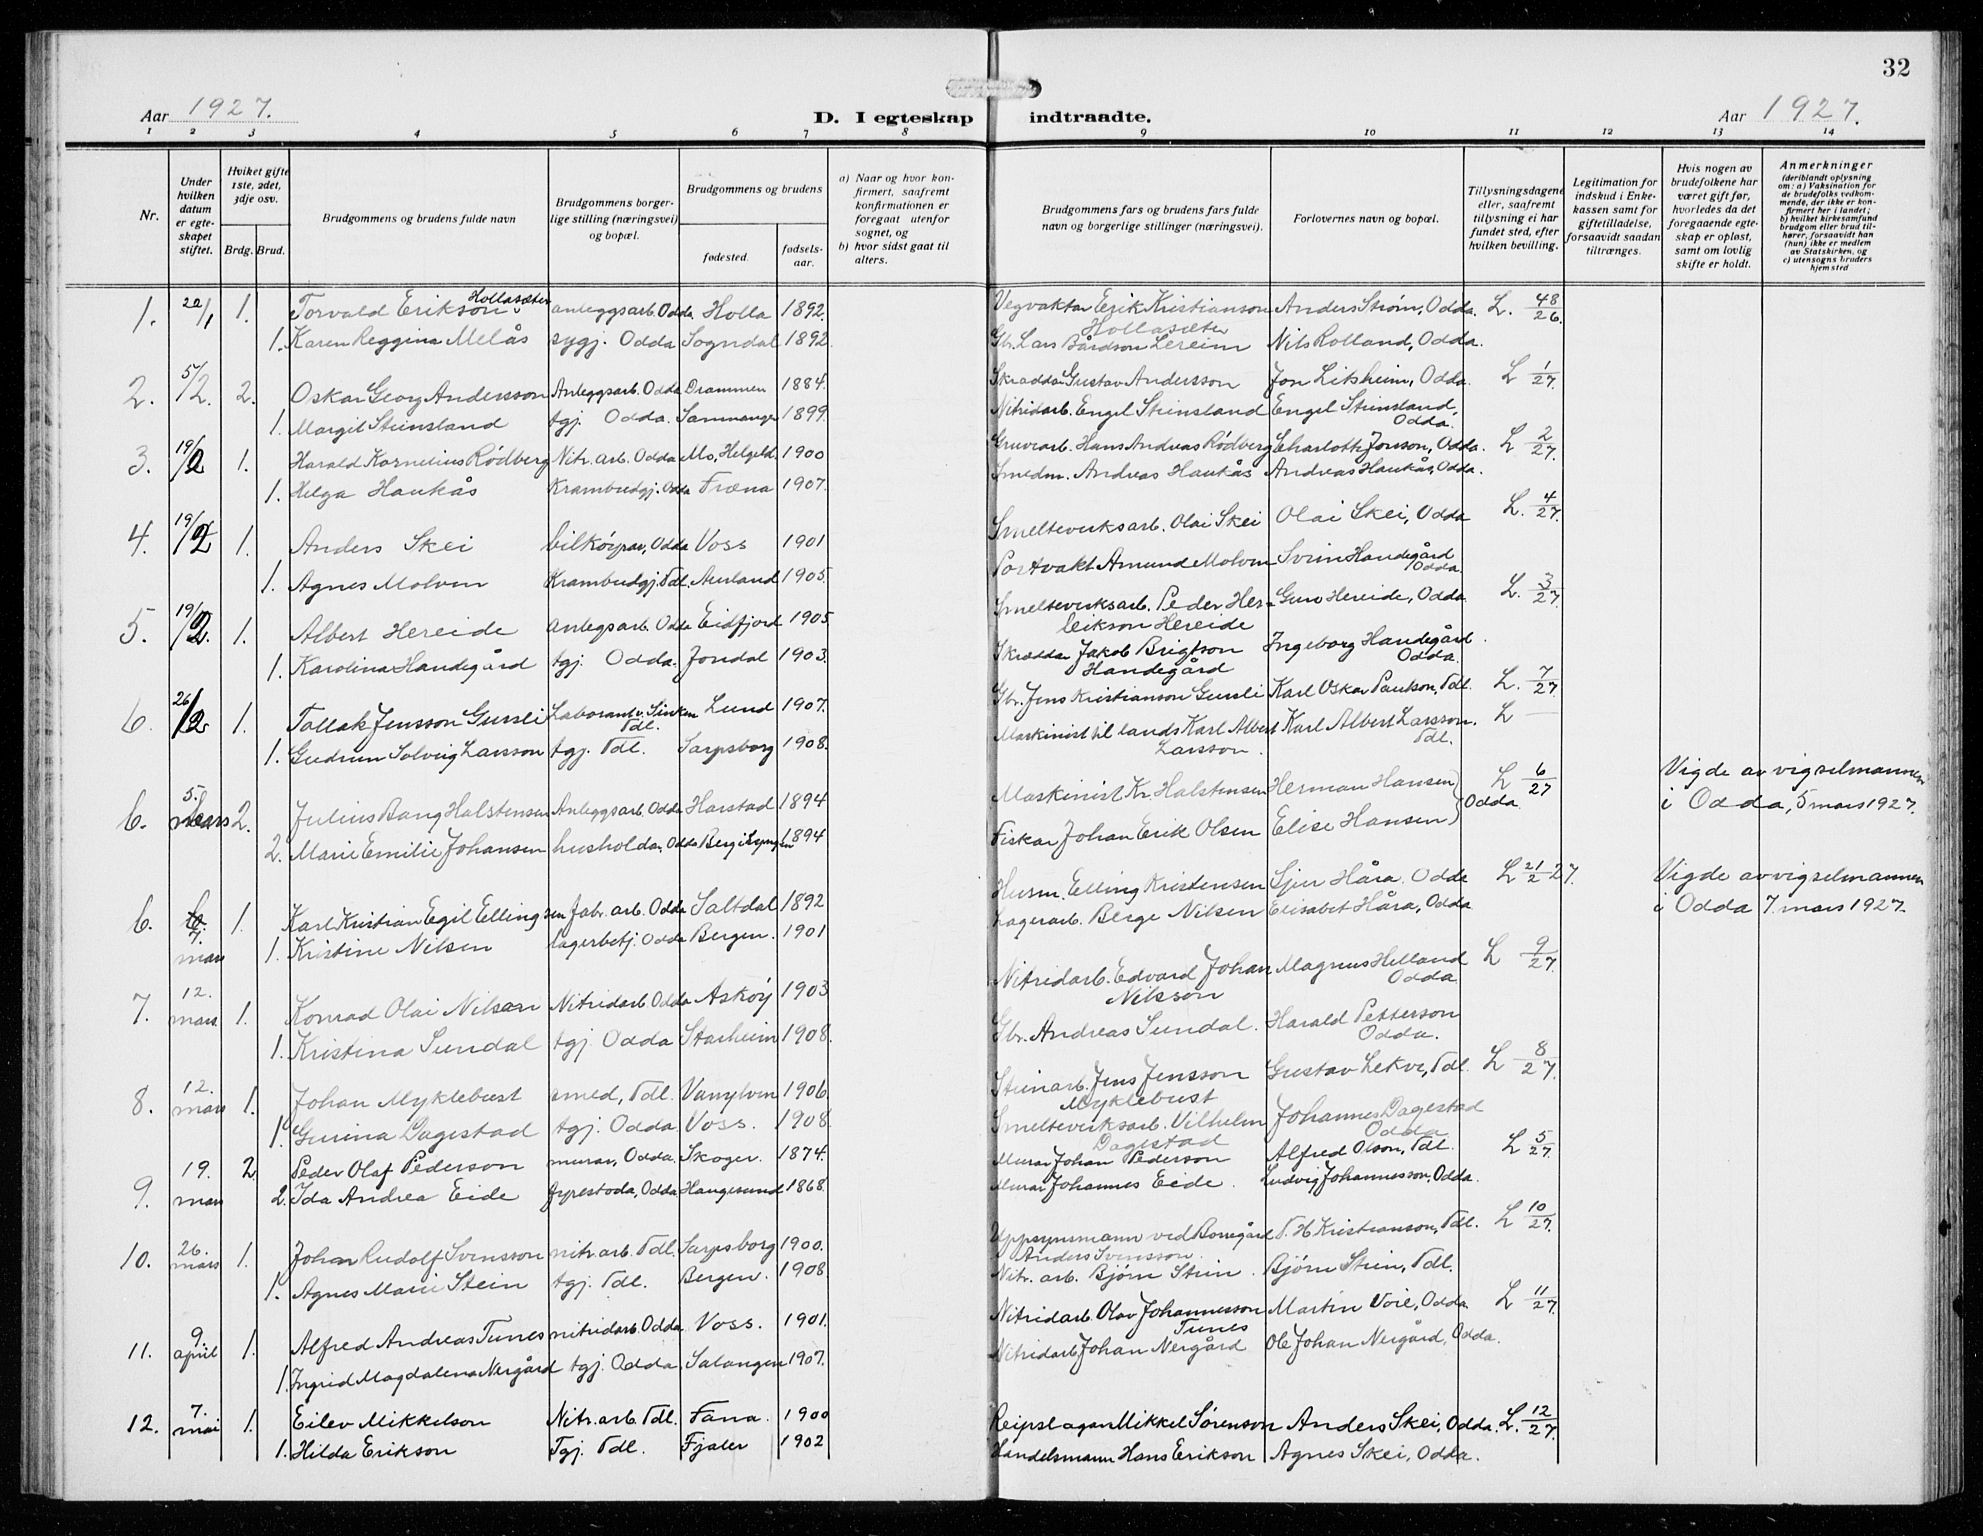 32
Aar 1927.
D. I egteskap indtraadte.
Aar 1927.
1 2 3 4 5 6 7 8 9 10 11 12 13 14
Nr.
Under hvilken datum er egteskapet stiftet.
Hvilket gifte 1ste, 2det, 3dje osv.
Brdg. Brud.
Brudgommens og brudens fulde navn
Brudgommens borgerlige stilling (næringsvei) og bopæl.
Brudgommens og brudens
fødested.
fødselsaar.
a) Naar og hvor konfirmert, saafremt konfirmationen er foregaat utenfor sognet, og
b) hvor sidst gaat til alters.
Brudgommens fars og brudens fars fulde navn og borgerlige stillinger (næringsvei).
Forlovernes navn og bopæl.
Tillysningsdagene eller, saafremt tillysning ei har fundet sted, efter hvilken bevilling.
Legitimation for indskud i Enkekassen samt for giftetilladelse, forsaavidt saadan tiltrænges.
Hvis nogen av brudefolkene har været gift før, hvorledes da det foregaaende egteskap er opløst, samt om lovlig skifte er holdt.
Anmerkninger (deriblandt oplysning om: a) Vaksination for de brudefolks vedkommende, der ikke er konfirmert her i landet; b) hvilket kirkesamfund brudgom eller brud tilhører, forsaavidt han (hun) ikke er medlem av Statskirken, og c) utensogns bruders hjemsted
1. 22/1 1. Torvald Erikson Hollasæter anleggsarb. Odda Holla 1892. Vegvaktar Erik Kristianson Hollasæter Anders Strøm, Odda. L. 48/26.
1. Karen Reggina Melås sygj. Odda Sogndal 1892. Gbr. Lars Bårdson Lereim Nils Rolland, Odda.
2. 5/2. 2. Oskar Georg Andersson Anleggsarb. Odda Drammen 1884. Skraddar Gustav Andersson Jon Litsheim, Odda. L 1/27.
1. Margit Steinsland tgj. Odda. Sammanger 1899. Nitridarb. Engel Steinsland Engel Steinsland, Odda.
3. 19/2 1. Harald Kornelius Rödberg Nitr. arb. Odda Mo, Helgeld. 1900 Gruvearb. Hans Andreas Rödberg Charlotte Jonson, Odda. L 2/27.
1. Helga Haukås Krambudgj. Odda Fræna 1907. Smedm. Andreas Haukås Andreas Haukås, Odda.
4. 19/2 1. Anders Skei bilköyrar, Odda Voss 1901 Smelteverksarb. Olai Skei Olai Skei, Odda L. 4/27.
1. Agnes Molven Krambudgj. Tdl. Aurland 1905. Portvakt Amund Molven Svein Handegård Odda.
5. 19/2. 1. Albert Hereide anlegsarb. Odda Eidfjord 1905 Smelteverksarb. Peder Herleikson Hereide Guro Hereide, Odda. L. 3/27.
1. Karolina Handegård tgj. Odda. Jondal 1903. Skrædder Jakob Brigtson Handegård Ingeborg Handegård Odda.
6. 26/2 1. Tallak Jensson Gursli Laborant v. Sinken Tdl. Lund 1907. Gbr. Jens Kristianson Gursli Karl Oskar Paulson, Tdl. L. 7/27.
1. Gudrun Solveig Larsson tgj. Tdl. Sarpsborg 1908. Maskinist til lands Karl Albert Larsson. Karl Albert Larsson. Tdl. L —
6. 5. mars 2. Julius Bang Halstensen Anleggsarb. Odda Harstad 1894 Maskinist Kr. Halstensen Herman Hansen) L 6/27 Vigde av vigselmannen i Odda, 5 mars 1927.
2. Marie Emilie Johansen husholda, Odda Berg i Lyngen 1894 Fiskar Johan Erik Olsen Elise Hansen) (Odda.
6. 7. mars 1. Karl Kristian Egil Ellingsen Fabr. arb. Odda Saltdal 1892 Husm. Elling Kristensen Sjur Håra, Odda L 21/2 27. Vigde av vigselmannen i Odda 7. mars 1927.
1. Kristine Nilsen lagerbetj. Odda Bergen. 1901 Lagerarb. Berge Nilsen Elisabet Håra, Odda
7. 12. mars. 1. Konrad Olai Nilsen Nitridarb. Odda Askøy 1903 Nitridarb. Edvard Johan Nilsson Magnus Helland Odda L 9/27.
1. Kristina Sundal tgj. Odda Starheim 1908. Gbr. Andreas Sundal. Harald Petterson Odda.
8. 12. mars 1. Johan Myklebust smed, Tdl. Vanylven 1906. Steinarb. Jens Jensson Myklebust Gustav Lekve, Tdl. L 8/27.
1. Gurina Dagestad tgj. Odda Voss. 1908. Smelteverksarb. Vilhelm Dagestad Johannes Dagestad Odda
9. 19. mars 2. Peder Olaf Pederson murar, Odda. Skoger. 1874. Murar Johan Pederson Alfred Olson, Tdl. L 5/27.
2. Ida Andrea Eide fyrestoda, Odda Haugesund 1868. Murar Johannes Eide. Ludvig Johannesson, Odda.
10. 26. mars 1. Johan Rudolf Svensson nitr. arb. Tdl. Sarpsborg 1900. Uppsynsmann ved Borregård Anders Svensson. T. H. Kristianson, Tdl. L 10/27.
1. Agnes Marie Stein tgj. Tdl. Bergen. 1908. Nitr. arb. Bjørn Stein. Bjørn Stein, Tdl.
11. 9. april 1. Alfred Andreas Tunes nitridarb. Odda. Voss. 1901. Nitridarb. Olav Johannesson Tunes Martin Voie, Odda. L 11/27.
1. Ingrid Magdalena Nergård tgj. Odda. Salangen 1907. Nitridarb Johan Nergård Ole Johan Nergård, Odda.
12. 7. mai 1. Eilev Mikkelson Nitr. arb. Tdl. Fana. 1900 Reipslagar Mikkel Sørenson Anders Skei, Odda. L. 12/27.
1. Hilda Erikson Tgj. Tdl. Fjaler 1902 Handelsmann Hans Erikson Agnes Skei, Odda.